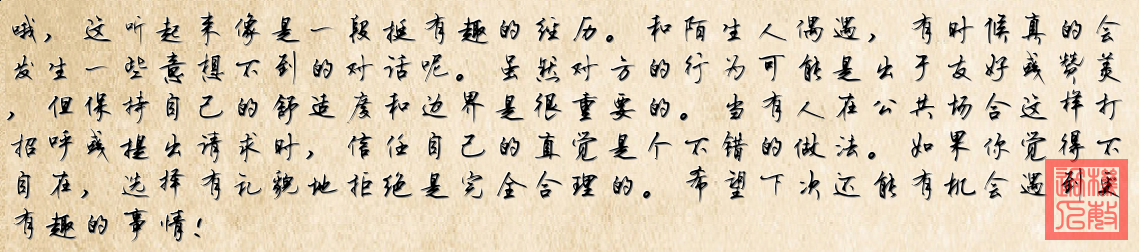 哦，这听起来像是一段挺有趣的经历。和陌生人偶遇，有时候真的会
发生一些意想不到的对话呢。虽然对方的行为可能是出于友好或赞美
，但保持自己的舒适度和边界是很重要的。当有人在公共场合这样打
招呼或提出请求时，信任自己的直觉是个不错的做法。如果你觉得不
自在，选择有礼貌地拒绝是完全合理的。希望下次还能有机会遇到更
有趣的事情！